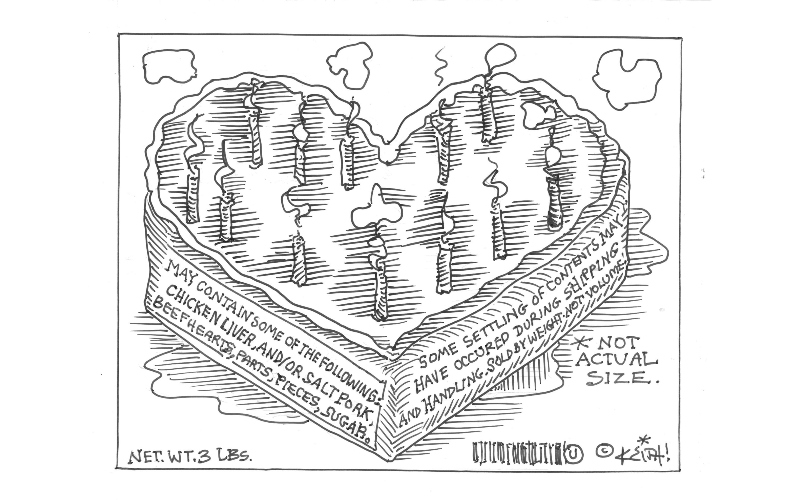 MAY CONTAIN SOME OF THE FOLLOWING:
CHICKEN LIVER, AND/OR SALT PORK,
BEEF HEARTS, PARTS, PIECES, SUGAR.
SOME SETTLING OF CONTENTS MAY
HAVE OCCURED DURING SHIPPING
AND HANDLING. SOLD BY WEIGHT-NOT VOLUME.
* NOT
ACTUAL
SIZE.
NET. WT. 3 LBS.
U © KEITH!